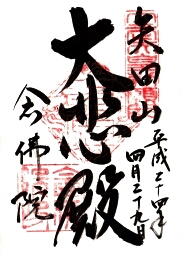 矢田山
平成二十四年
四月二十九日
大悲殿
念佛院